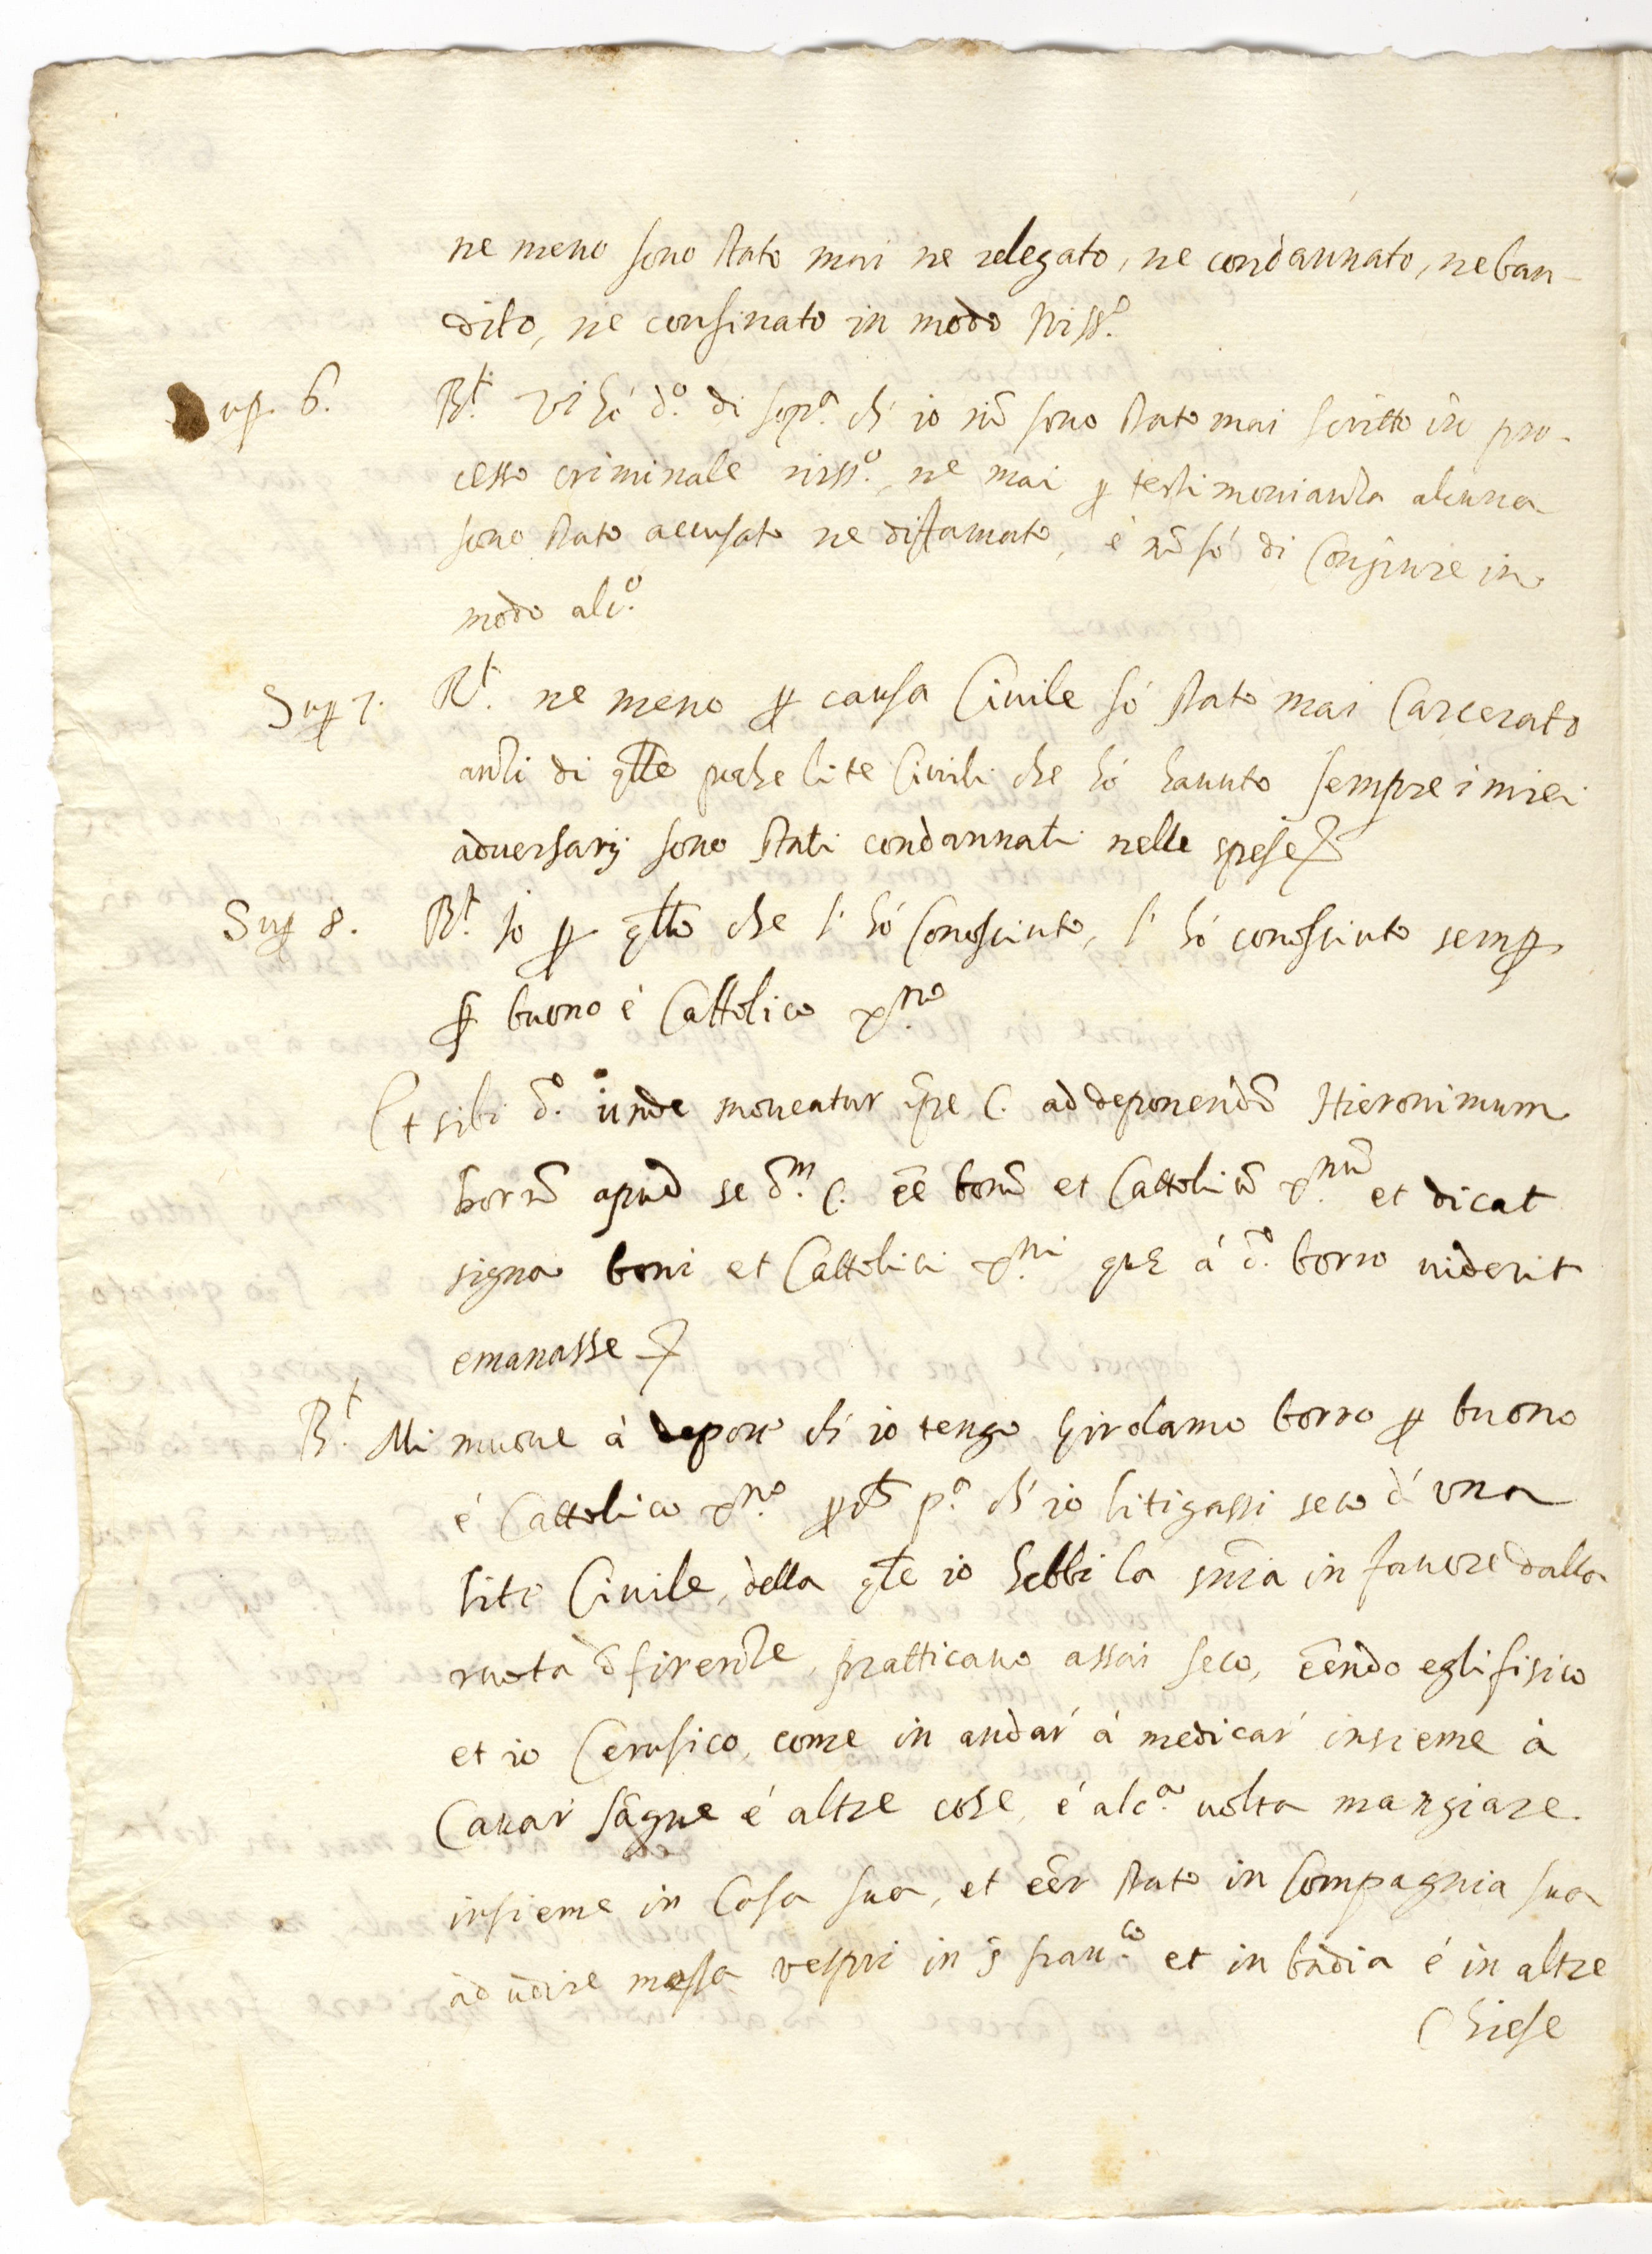 ne meno sono stato mai ne relegato, ne condannato, ne ban
dito, ne confinato in modo niss.º
Sup. 6. R.t Vi hò d.º di sop.ª ch' io nõ sono stato mai scritto in pro-
cesso criminale niss.º, ne mai p testimonianza alcuna
sono stato accusato ne diffamato, è nõ sò di Congiure in
modo alc.º
Sup 7. R.t ne meno p causa Ciuile sò stato mai Carcerato
anzi di qlle poche lite Ciuili che hò hauuto sempre i miei
aduersarij sono stati condannati nelle spese
Sup 8. R.t Io p qllo che l' hò Conosciuto, l' hò conosciuto semp
p buono è Cattolico xp.no
Et sibi d.º unde moueatur ipse C. ad deponendũ Hieronimum
borrũ apud se d.m C. eẽ bonũ et Cattolicũ xp.nũ et dicat
signa boni et Cattolici xp.ni que à d.º borro uiderit
emanasse
R.t Mi muoue à deporr ch' io tengo Girolamo borro p buono
è Cattolico xp.no p.ª ch' io litigassi seco d' una
lite Ciuile, della qle io hebbi la snia in fauore dalla
ruota d firenze, pratticauo assai seco, eẽndo egli fisico
et io Cerusico, come in andar' à medicar' insieme à
Cauar' sãgue è altre cose, è alc.ª uolta mangiare
insieme in Casa sua, et eẽr stato in Compagnia sua
ad udire messa vespri in S. fran.co et in badia è in altre
Chiese